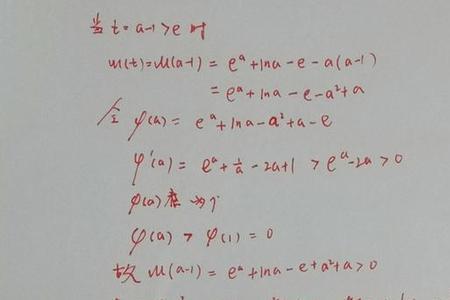 当 t = a-1 > e 时
u(t) = u(a-1) = eᵃ + lna - e - a(a-1)
= eᵃ + lna - e - a² + a
令 φ(a) = eᵃ + lna - a² + a - e
φ'(a) = eᵃ + 1/a - 2a + 1 > eᵃ - 2a > 0
φ(a) ↗
φ(a) > φ(1) = 0
故 u(a-1) = eᵃ + lna - e + a² + a > 0